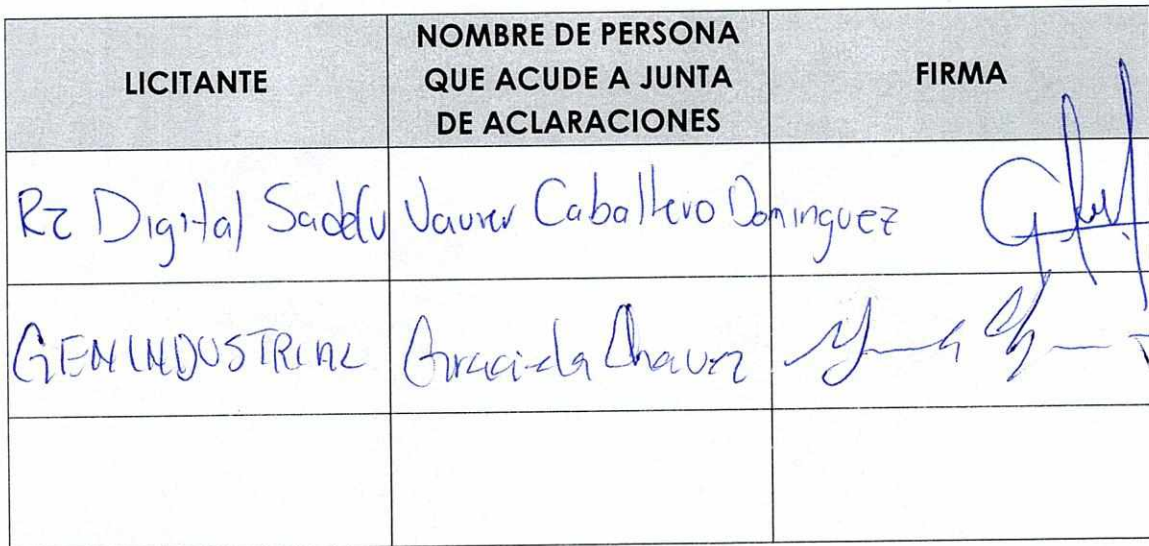 LICITANTE
NOMBRE DE PERSONA
QUE ACUDE A JUNTA
DE ACLARACIONES
FIRMA
Rz Digital Sadecv
Javier Caballero Dominguez
GEN INDUSTRIAL
Graciela Chavez